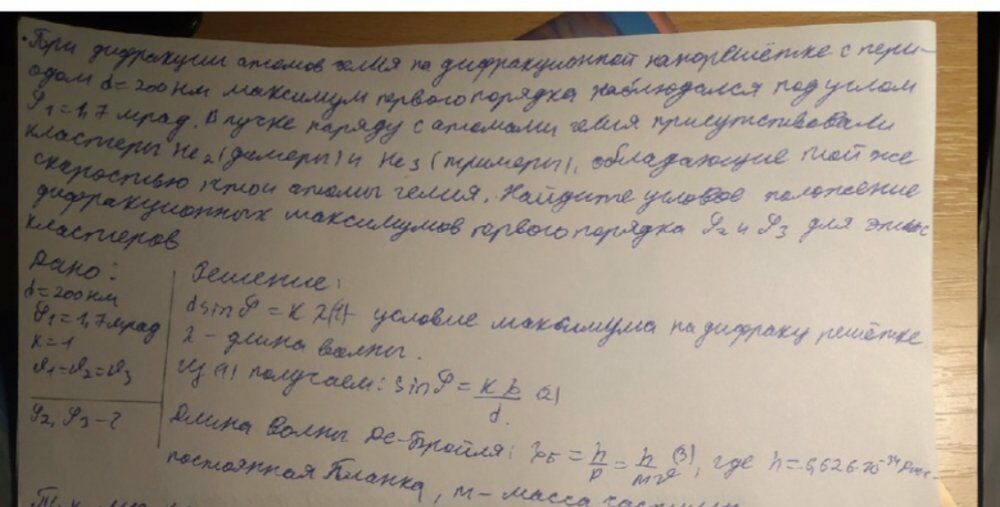 При дифракции атомов гелия на дифракционной нанорешётке с пери-
одом d=200 нм максимум первого порядка наблюдался под углом
φ₁=1,7 мрад. В пучке наряду с атомами гелия присутствовали
кластеры He₂ (димеры) и He₃ (тримеры), обладающие той же
скоростью что и атомы гелия. Найдите угловое положение
дифракционных максимумов первого порядка φ₂ и φ₃ для этих
кластеров
Дано:
d=200 нм
φ₁=1,7 мрад
k=1
υ₁=υ₂=υ₃
φ₂, φ₃-?
Решение:
d sin φ = k λ (1) - условие максимума на дифракц решётке
λ - длина волны.
Из (1) получаем: sin φ = kλ/d (2)
Длина волны Де-Бройля: λБ = h/p = h/mυ (3), где h=6,626·10⁻³⁴ Дж·с-
постоянная Планка, m - масса частицы